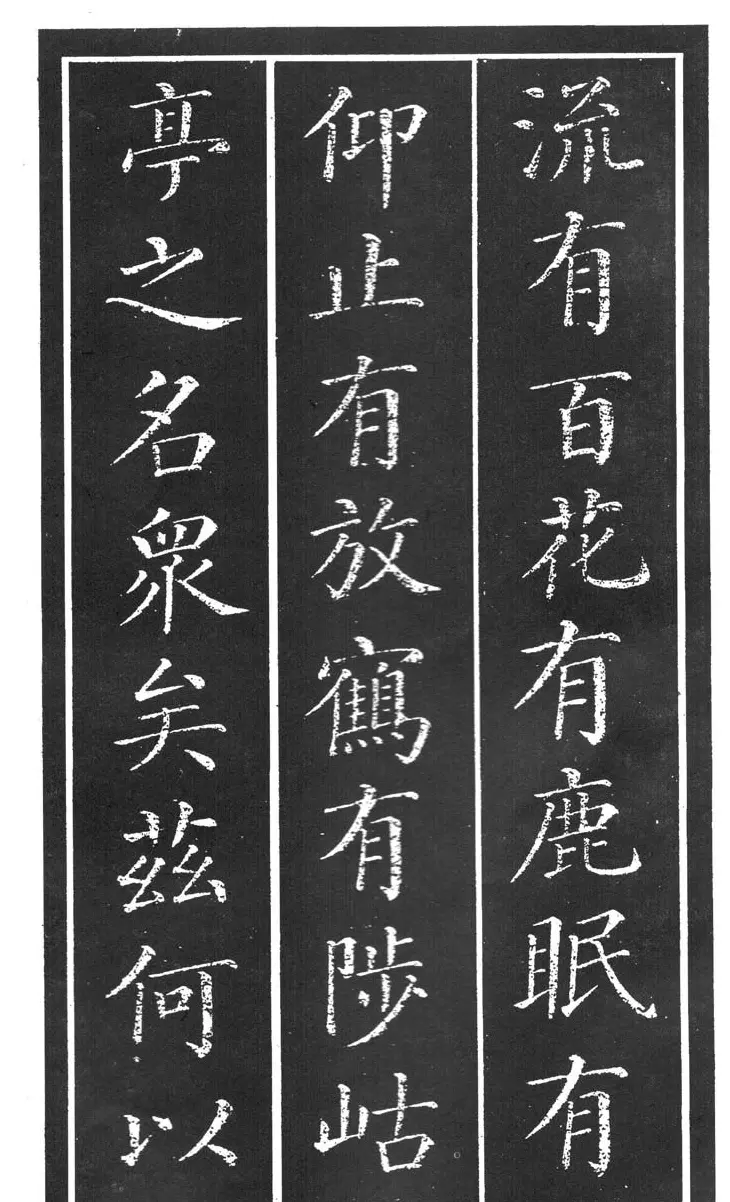 流有百花有鹿眠有
仰止有放鶴有陟岵
亭之名眾矣茲何以